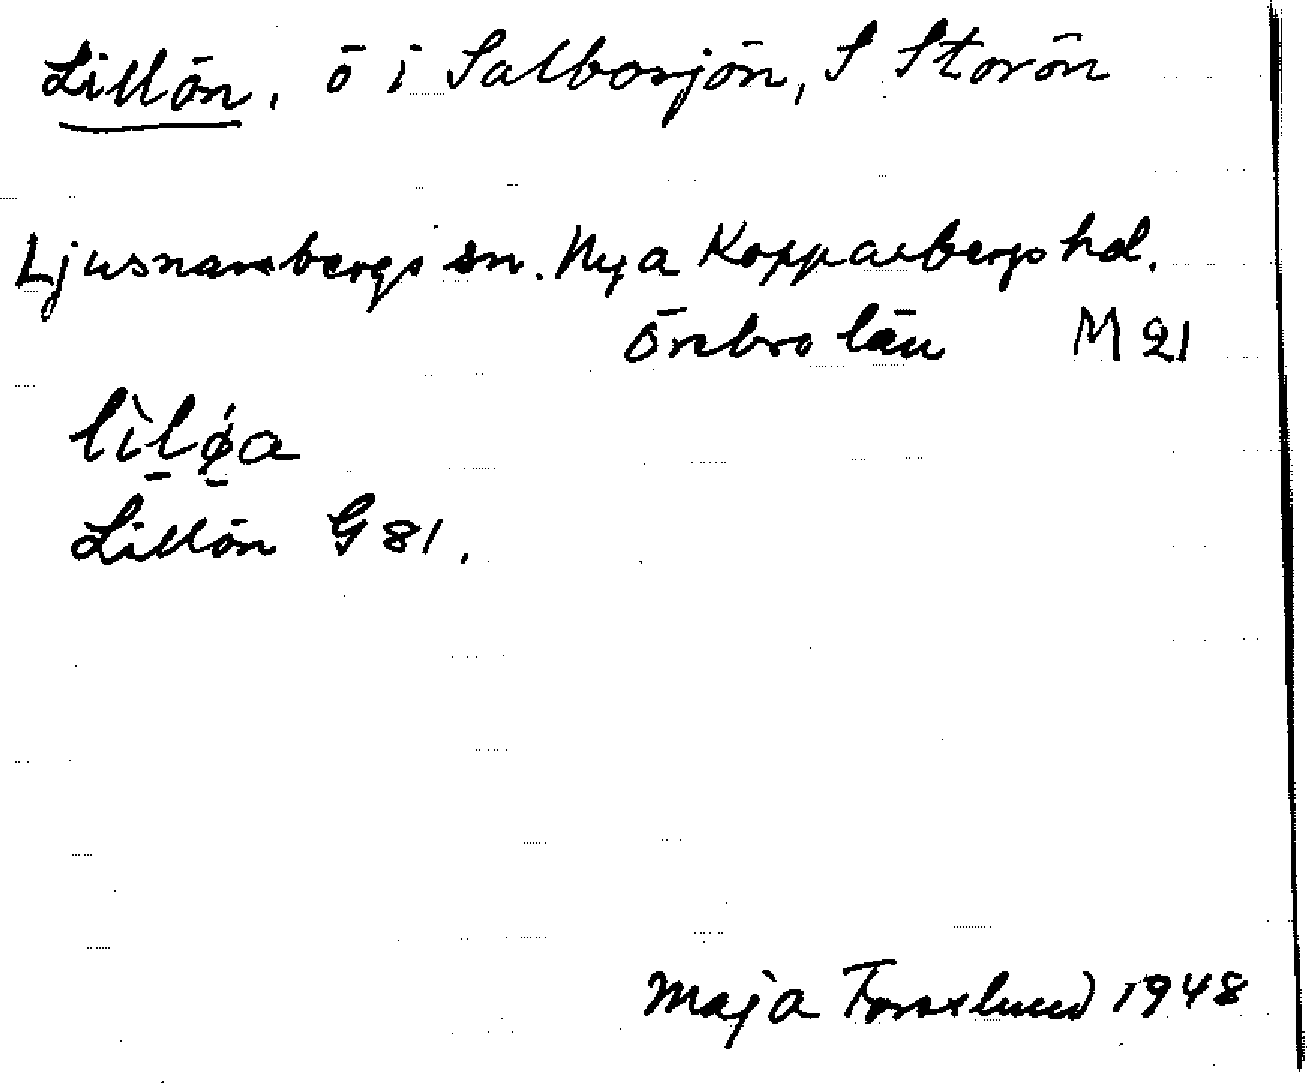 Lillön, ö i Salbosjön, S Storön
Ljusnarsbergs sn. Nya Kopparbergs hd.
Örebro län M 21
lìl̠ǿ̠a
Lillön G 81.
Maja Forsslund 1948